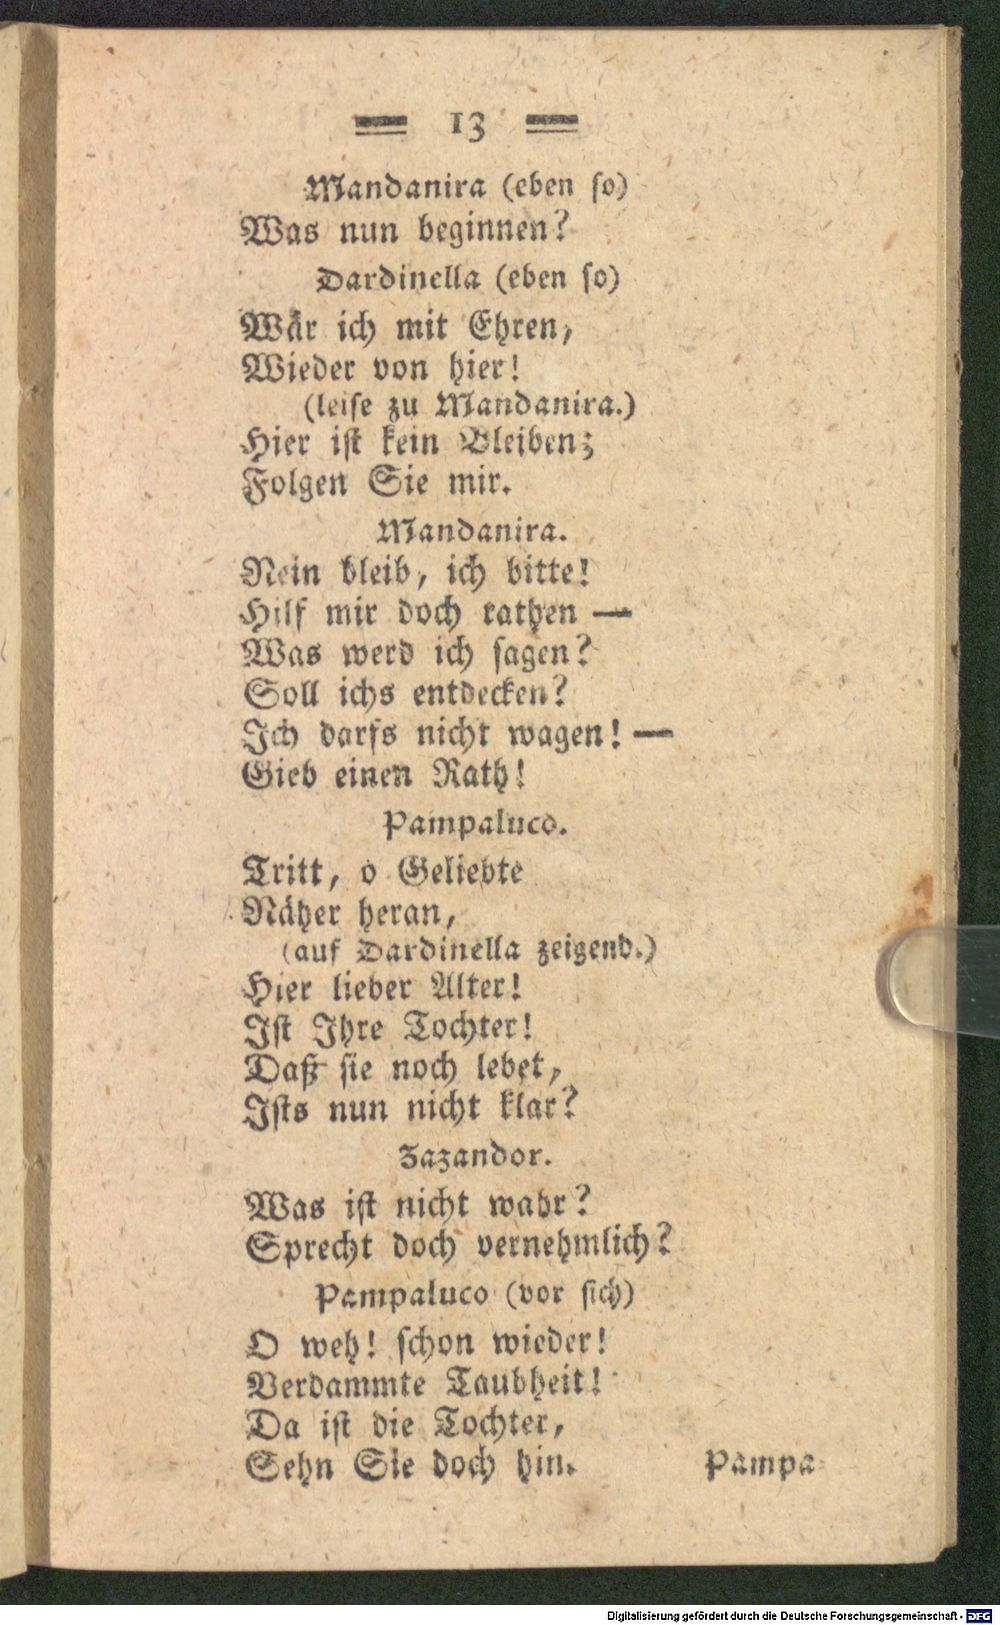 13
Mandanira (eben ſo)
Was nun beginnen?
Dardinella (eben ſo)
Wär ich mit Ehren,
Wieder von hier!
(leiſe zu Mandanira.)
Hier iſt kein Bleiben;
Folgen Sie mir.
Mandanira.
Nein bleib, ich bitte!
Hilf mir doch rathen —
Was werd ich ſagen?
Soll ichs entdecken?
Ich darfs nicht wagen! —
Gieb einen Rath!
Pampaluco.
Tritt, o Geliebte
Näher heran,
(auf Dardinella zeigend.)
Hier lieber Alter!
Iſt Ihre Tochter!
Daß ſie noch lebet,
Iſts nun nicht klar?
Zazandor.
Was iſt nicht wahr?
Sprecht doch vernehmlich?
Pampaluco (vor ſich)
O weh! ſchon wieder!
Verdammte Taubheit!
Da iſt die Tochter,
Sehn Sie doch hin.
Pampa-
Digitalisierung gefördert durch die Deutsche Forschungsgemeinschaft - DFG